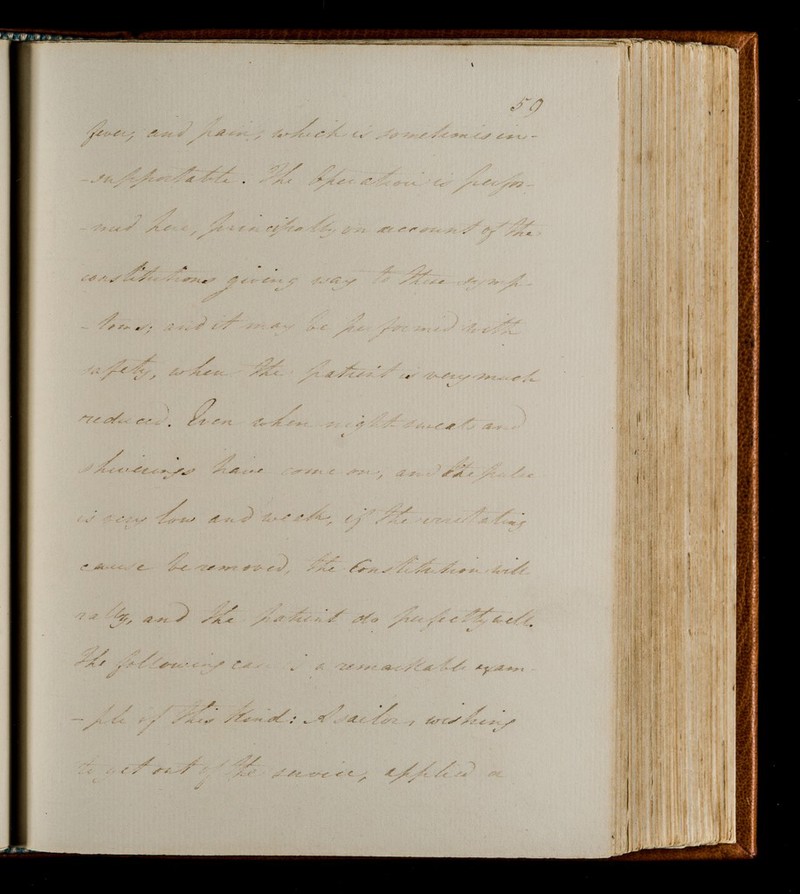 59
fever, and pain, which is sometimes in-
-supportable. The Operation is perfor-
-med here, principally on account of the
constitutions giving way to these symp-
-toms; and it may be performed with
safety, when the patient is very much
reduced. Even when night sweats and
shiverings have come on, and the pulse
is very low and weak, if the irritating
cause be removed, the Constitution will
rally, and the patient do perfectly well.
The following case is a remarkable exam-
-ple of this kind: A sailor, wishing
to get out of the service, applied a